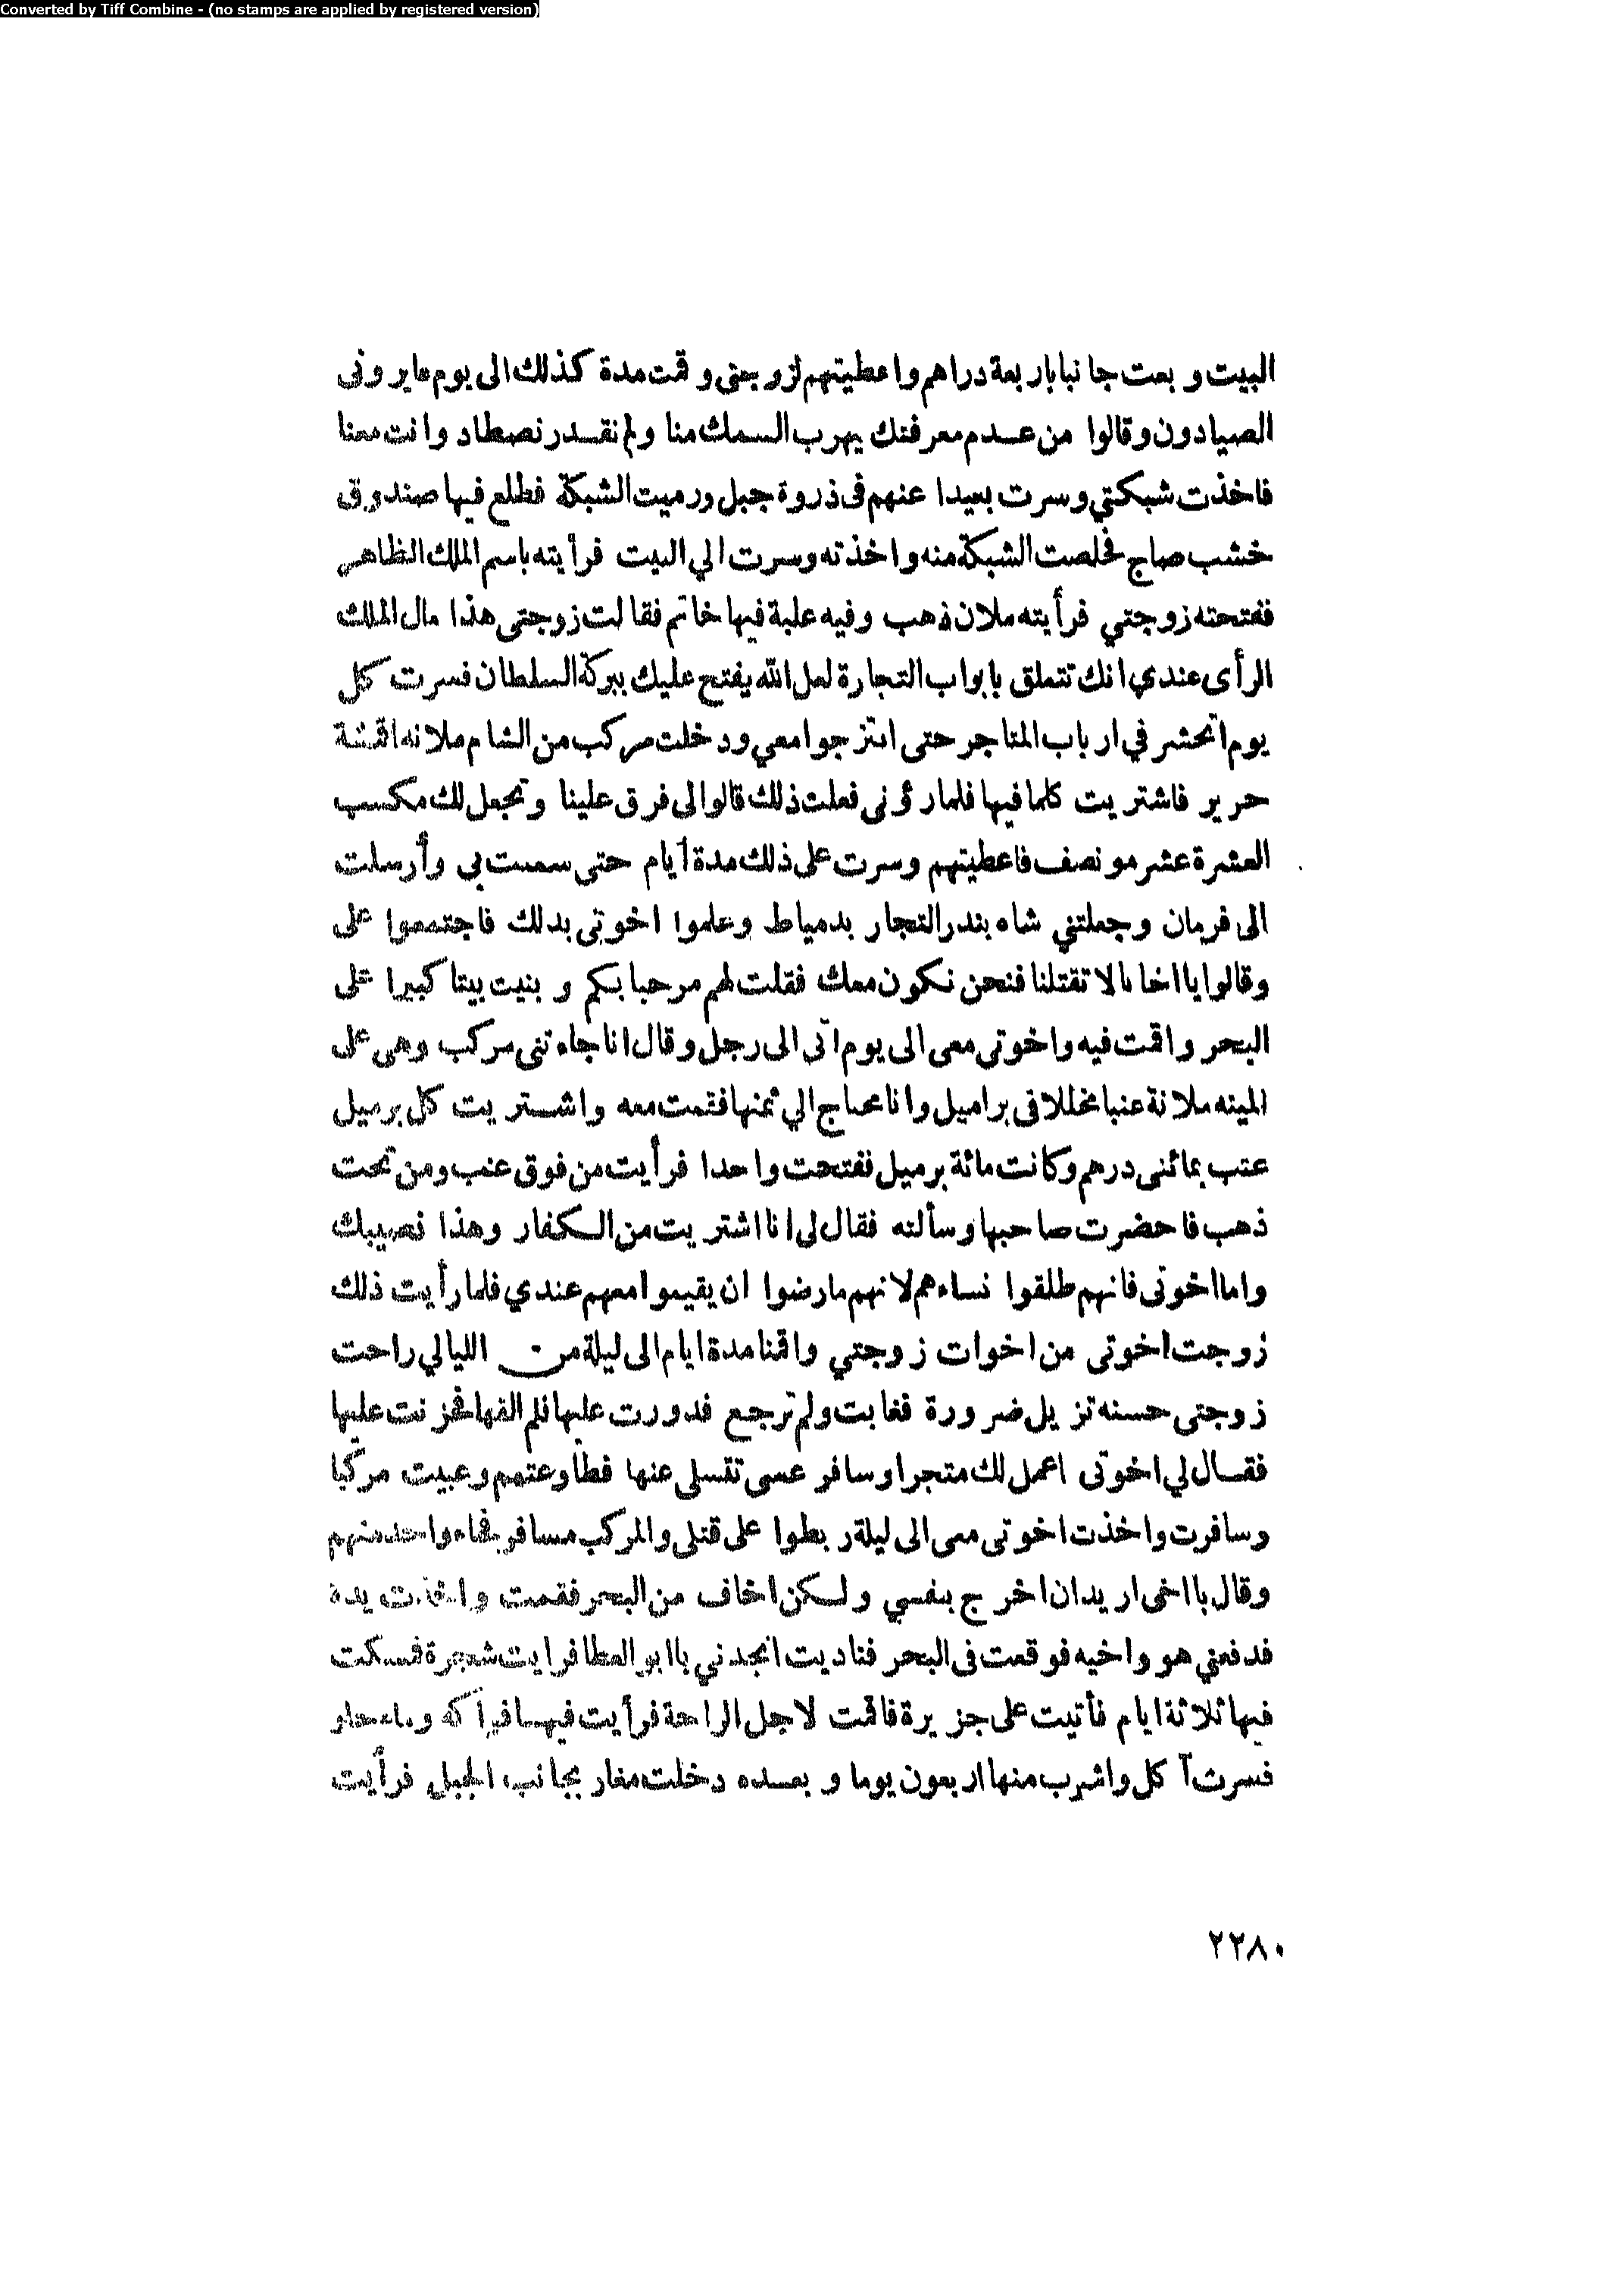 Converted by Tiff Combine - (no stamps are applied by registered version)
البيت وبعت جانبا باربعة دراهم واعطيتهم لزوجتى وقمت مدة كذلك الى يوم عايرونى
الصيادون وقالوا من عدم معرفتك يهرب السمك منا ولم نقدر نصطاد وانت معنا
فاخذت شبكتي وسرت بعيدا عنهم فى ذروة جبل ورميت الشبكة فطلع فيها صندوق
خشب صاج فخلصت الشبكة منه واخذته وسرت الي البيت فرأيته باسم الملك الظاهر
ففتحته زوجتي فرأيته ملان ذهب وفيه علبة فيها خاتم فقالت زوجتى هذا مال الملك
الرأى عندي انك تتعلق بابواب التجارة لعل الله يفتح عليك ببركة السلطان فسرت كل
يوم اتحشر في ارباب المتاجر حتى امتزجوا معي ودخلت مركب من الشام ملانه اقمشة
حرير فاشتريت كلما فيها فلما رؤنى فعلت ذلك قالوا لى فرق علينا وتجعل لك مكسب
العشرة عشر مو نصف فاعطيتهم وسرت على ذلك مدة أيام حتى سمعت بي وأرسلت
الى فرمان وجعلتني شاه بندر التجار بدمياط وعلموا اخوتى بدلك فاجتمعوا على
وقالوا يا اخانا لا تقتلنا فنحن نكون معك فقلت لهم مرحبا بكم وبنيت بيتا كبيرا على
البحر واقمت فيه واخوتى معى الى يوم اتى الى رجل وقال انا جاءتنى مركب وهى على
المينه ملانة عنبا مخللا فى براميل وانا محتاج الي ثمنها فقمت معه واشتريت كل برميل
عتب بمائتى درهم وكانت مائة برميل ففتحت واحدا فرأيت من فوق عنب ومن تحت
ذهب فاحضرت صاحبها وسألته فقال لى انا اشتريت من الكفار وهذا نصيبك
واما اخوتى فانهم طلقوا نساءهم لانهم مارضوا ان يقيموا معهم عندي فلما رأيت ذلك
زوجت اخوتى من اخوات زوجتي واقمنا مدة ايام الى ليلة من الليالي راحت
زوجتى حسنه تزيل ضرورة فغابت ولم ترجع فدورت عليها فلم الفها فحزنت عليها
فقال لي اخوتى اعمل لك متجرا وسافر عسى تقسلى عنها فطاوعتهم وعبيت مركبا
وسافرت واخذت اخوتى معى الى ليلة ربطوا على قتلى والمركب مسافر فجاء واحد منهم
وقال يا اخى اريد ان اخرج بنفسي ولكن اخاف من البحر فقمت واخذت يده
فدفعني هو واخيه فوقعت فى البحر فناديت انجدني يا ابو العطا فرايت شجرة فمسكت
فيها ثلاثة ايام فأتيت على جزيرة فاقمت لاجل الراحة فرأيت فيها فواكه وماء حلو
فسرت آكل واشرب منها اربعون يوما وبعده دخلت مغار بجانب الجبل فرأيت
٢٢٨٠